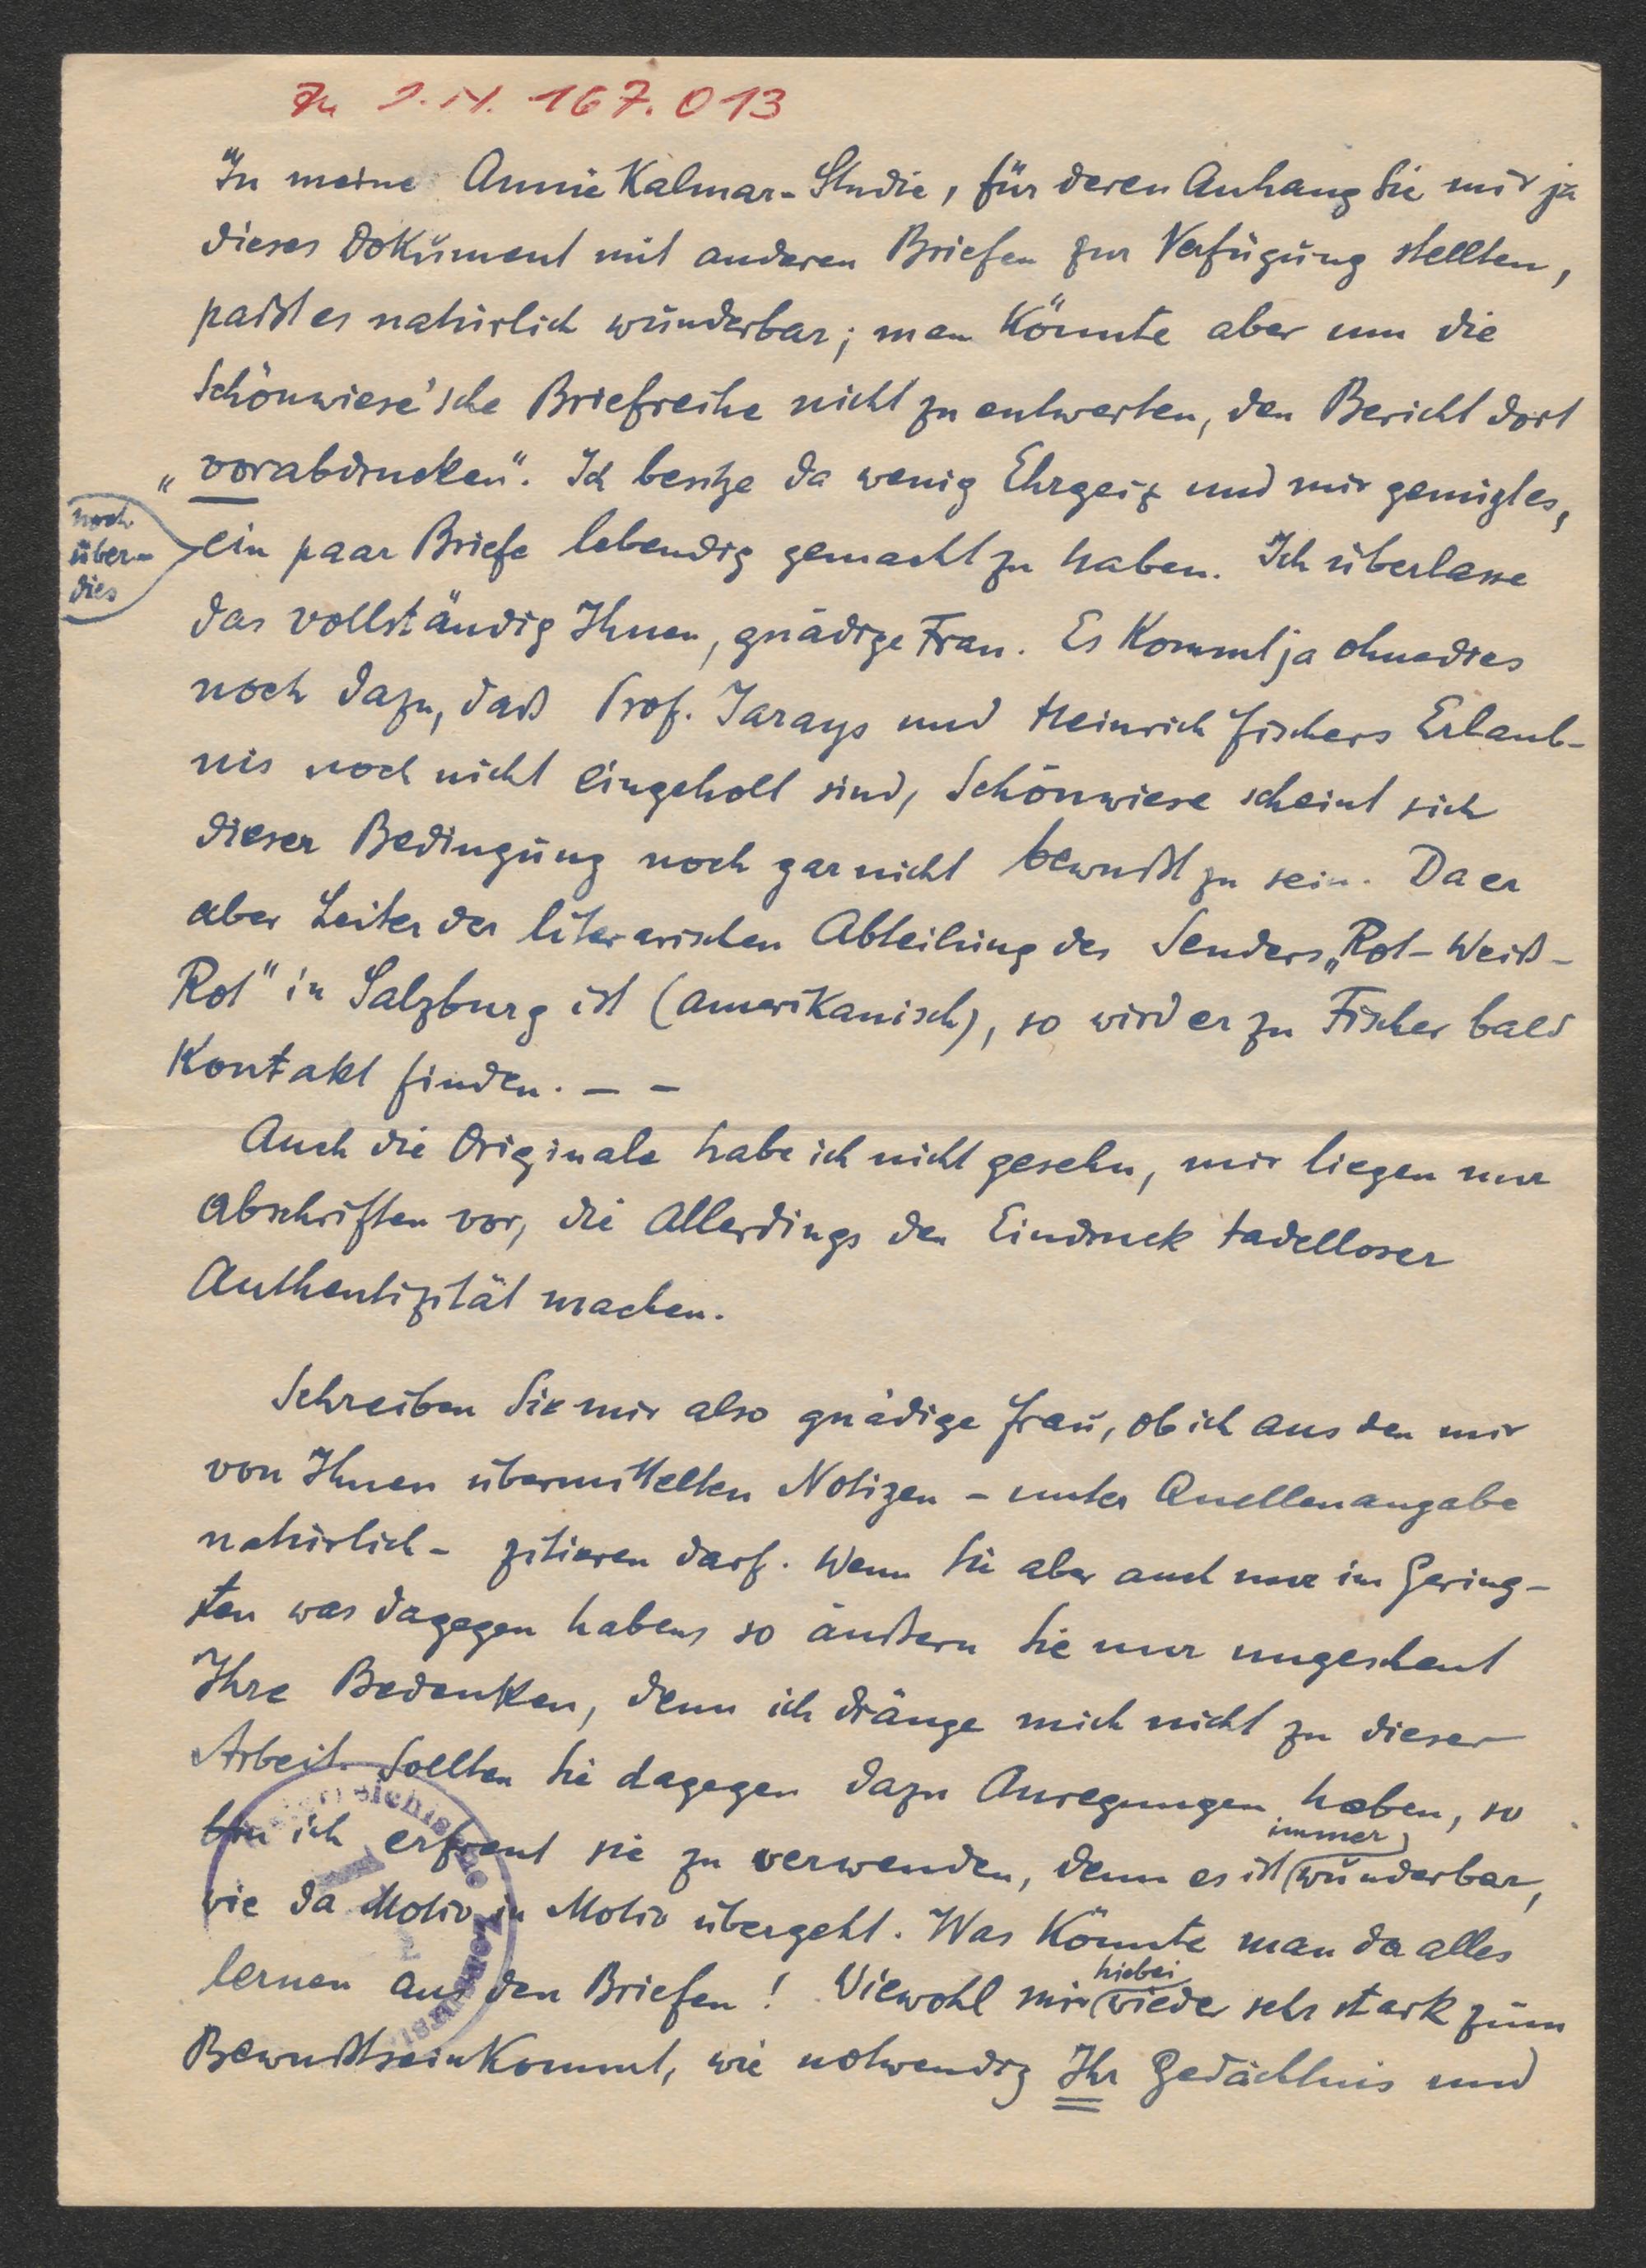 Zu I.N. 167.013
In meine Annie Kalmar-Studie, für deren Anhang Sie mir ja
dieses Dokument mit anderen Briefen zur Verfügung stellten,
paßt es natürlich wunderbar; man könnte aber um die
Schönwiese'sche Briefreihe nicht zu entwerten, den Bericht dort
„vorabdrucken“. Ich besitze da wenig Ehrgeiz und mir genügt es,
noch
über-
dies
ein paar Briefe lebendig gemacht zu haben. Ich überlasse
das vollständig Ihnen, gnädige Frau. Es kommt ja ohnedies
noch dazu, daß Prof. Jarays und Heinrich Fischers Erlaub-
nis noch nicht eingeholt sind, Schönwiese scheint sich
dieser Bedingung noch gar nicht bewußt zu sein. Da er
aber Leiter der literarischen Abteilung des Senders „Rot-Weiß-
Rot“ in Salzburg ist (amerikanisch), so wird er zu Fischer bald
Kontakt finden. — —
Auch die Originale habe ich nicht gesehn, mir liegen nur
Abschriften vor, die Allerdings den Eindruck tadelloser
Authentizität machen.
Schreiben Sie mir also gnädige Frau, ob ich aus den mir
von Ihnen übermittelten Notizen – unter Quellenangabe
natürlich – zitieren darf. Wenn Sie aber auch nur im Gering-
sten was dagegen haben, so äußern Sie nur ungescheut
Ihre Bedenken, denn ich dränge mich nicht zu dieser
Arbeit. Sollten Sie dagegen dazu Anregungen haben, so
immer
bin ich erfreut sie zu verwenden, denn es ist wunderbar,
wie da Motiv in Motiv übergeht. Was könnte man da alles
hiebei
lernen aus den Briefen! Wiewohl mir wieder sehr stark zum
Bewußtsein kommt, wie notwendig Ihr Gedächtnis und